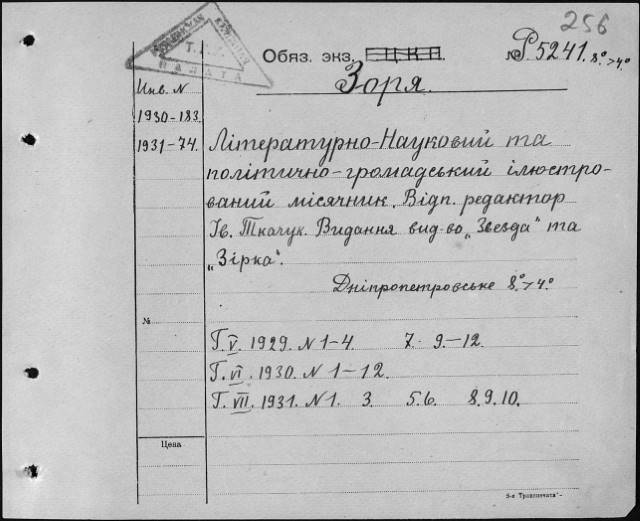 256
Обяз. экз. Е.Ц.К.П. № Р.5241. 8° > 4°
Т.
ПАЛАТА
Зоря.
Инв. N
1930-183.
1931-74.
Літературно-Науковий та
політично-громадський ілюстро-
ваний місячник. Відп. редактор
Ів. Ткачук. Видання вид-во „Звезда" та
„Зірка".
Дніпропетровське 8° > 4°
№
Г. V. 1929. N 1-4 7. 9-12.
Г. VI. 1930. N 1-12.
Г. VII. 1931. N 1. 3. 5.6. 8.9.10.
Цена